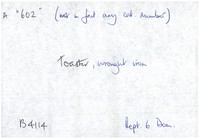 A "602" (not in fact any cat. number)
Toaster, wrought iron
B4114
Sept. 6 Dec.